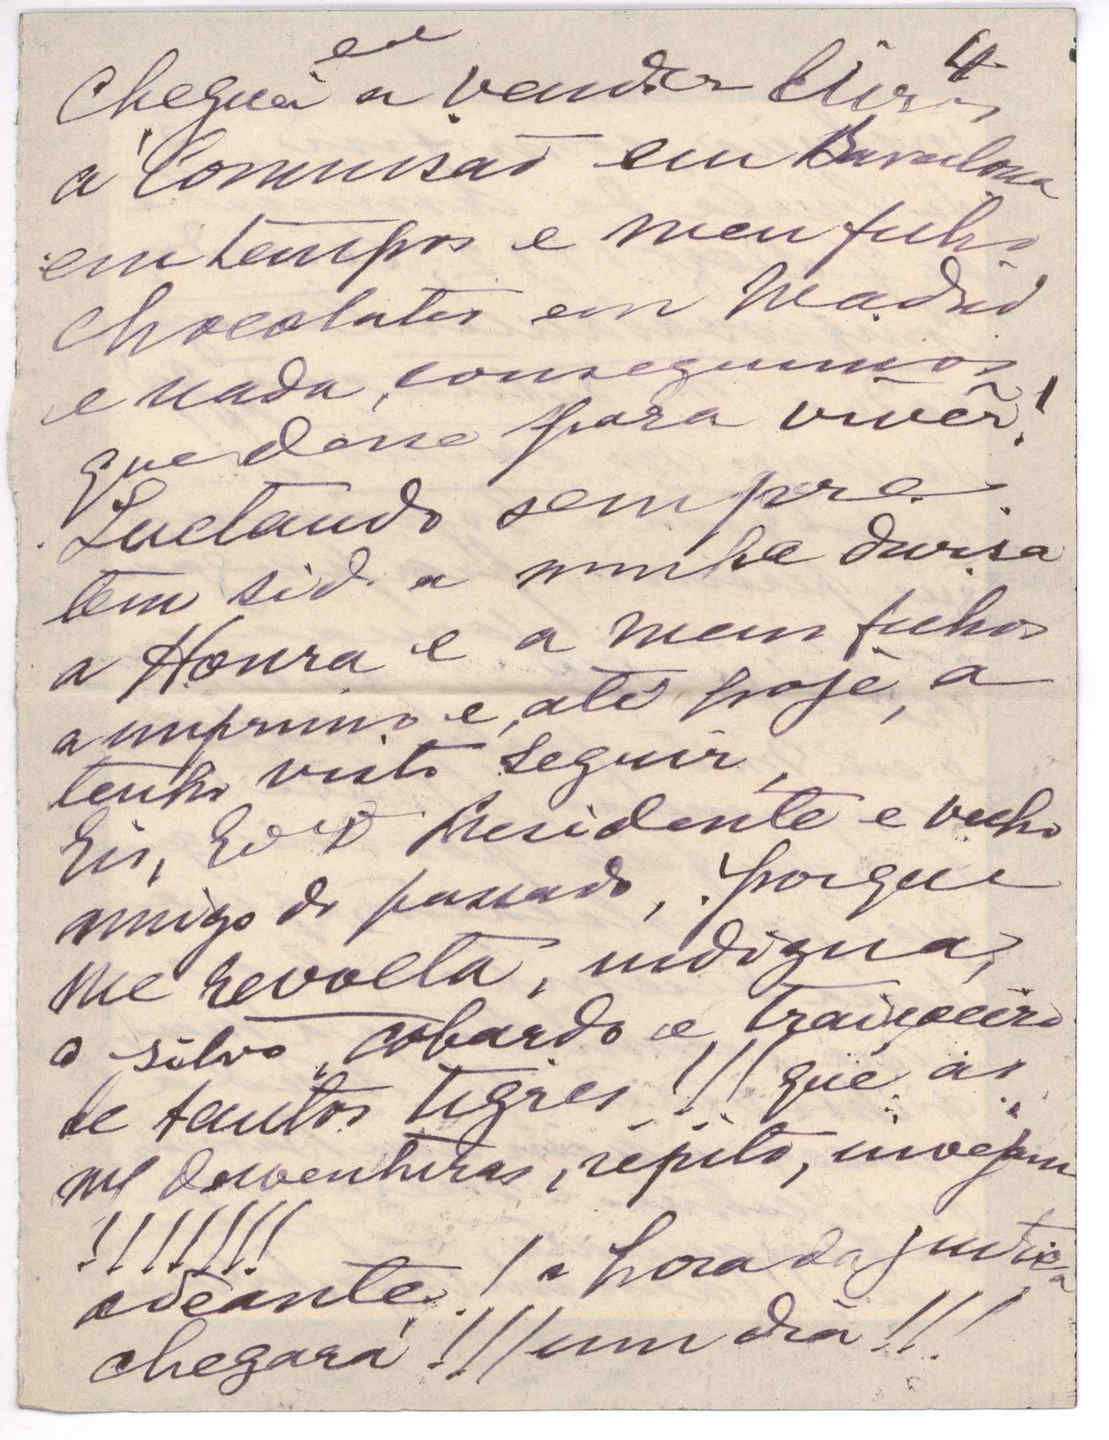 4
Cheguei eu a vender livros
á Comissaõ em Barcelona
em tempos e meu filho
chocolates em Madrid
e nada, conseguimos
que desse para vivêr!
Luctando sempre.
tem sido a minha divisa
a Honra e a meus filhos
a imprimo e, até hoje, a
tenho visto seguir,
Eis, Presidente e velho
amigo do passado, porque
me revolta, indigna,
o silvo, cobardo e, traiçoeiro
de tantos tigres!!! que as
desventuras, repito, invejam
!!!!!!!
adeante! a hora da justiça
chegará!!! um dia!!!